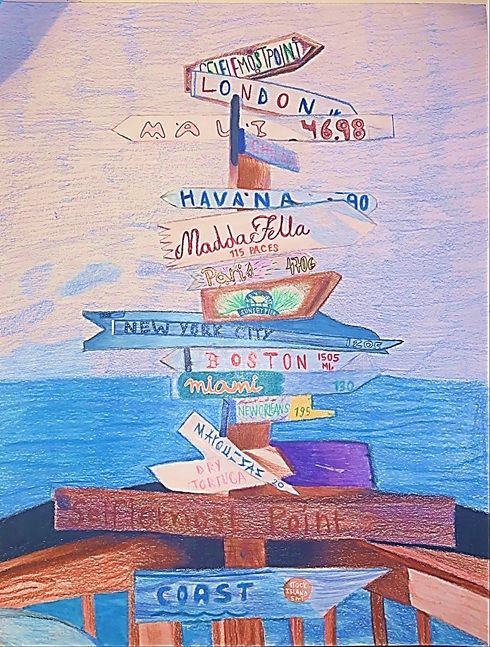 SELFIEMOSTPOINT
LONDON
MAUI 46.98
HAVANA 90
Madda Fella
115 PACES
Paris 4706
SUNSET PIER
NEW YORK CITY 1205
BOSTON 1505 MI.
miami 130
NEWORLEANS 195
MARQUESAS 20
DRY TORTUGA
Selfiemost Point
COAST
STOCK ISLAND 5 MI.